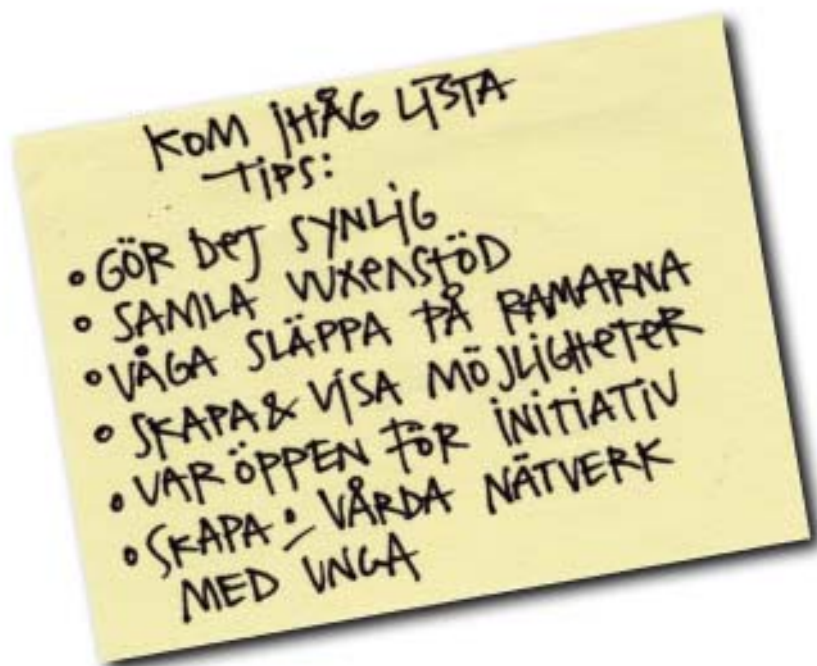 KOM IHÅG LISTA
TIPS:
• GÖR DET SYNLIG
• SAMLA VUXENSTÖD
• VÅGA SLÄPPA PÅ RAMARNA
• SKAPA & VISA MÖJLIGHETER
• VAR ÖPPEN FÖR INITIATIV
• SKAPA & VÅRDA NÄTVERK
MED UNGA